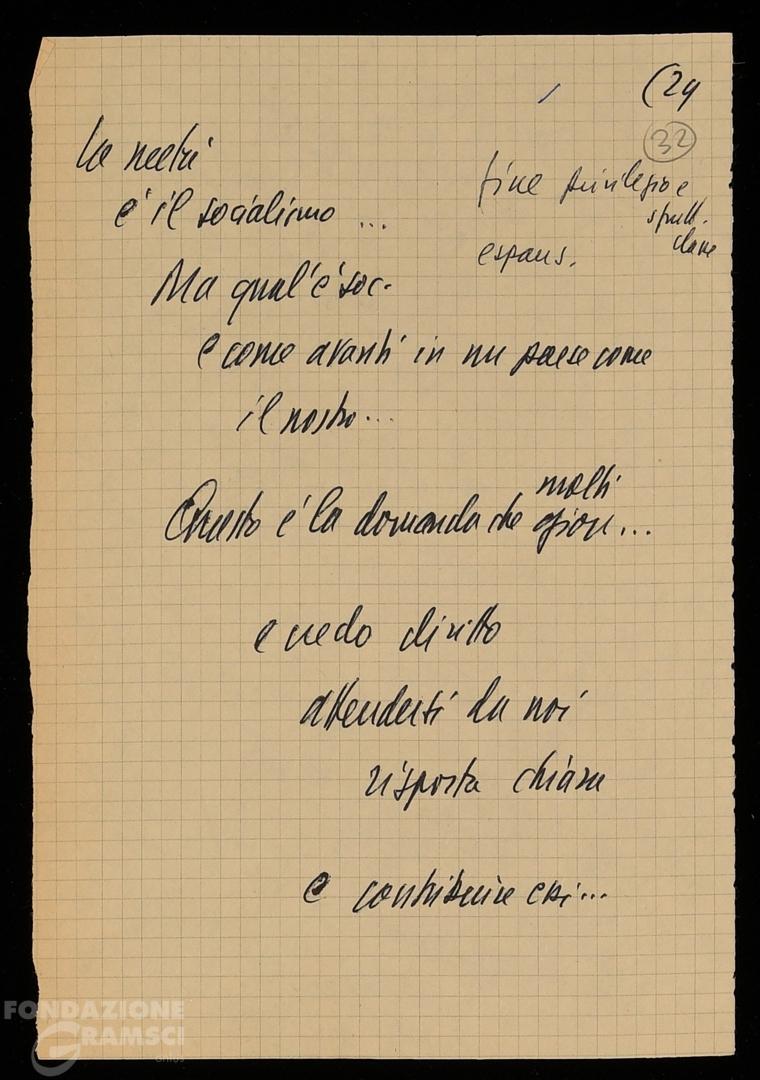 (29
32
La metà
è il socialismo ...
fine privilegio e
sfrutt.
classe
espans.
Ma qual'è soc.
e come avanti in un paese come
il nostro...
Questo è la domanda che
molti
giov...
e diritto
attendersi da noi
risposta chiara
e contribuire essi...
FONDAZIONE
GRAMSCI
onlus